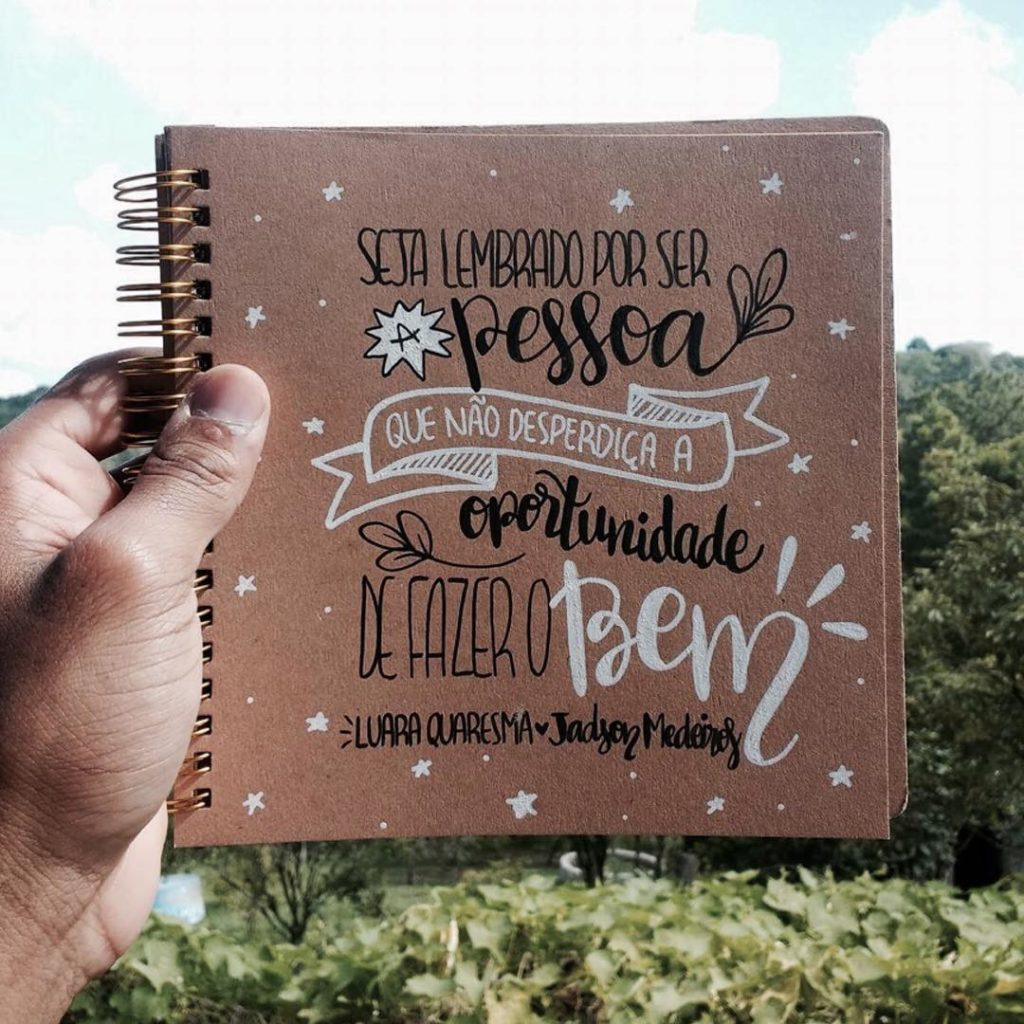 SEJA LEMBRADO POR SER
A pessoa
QUE NÃO DESPERDIÇA A
oportunidade
DE FAZER O Bem
LUARA QUARESMA♥Jadson Medeiros